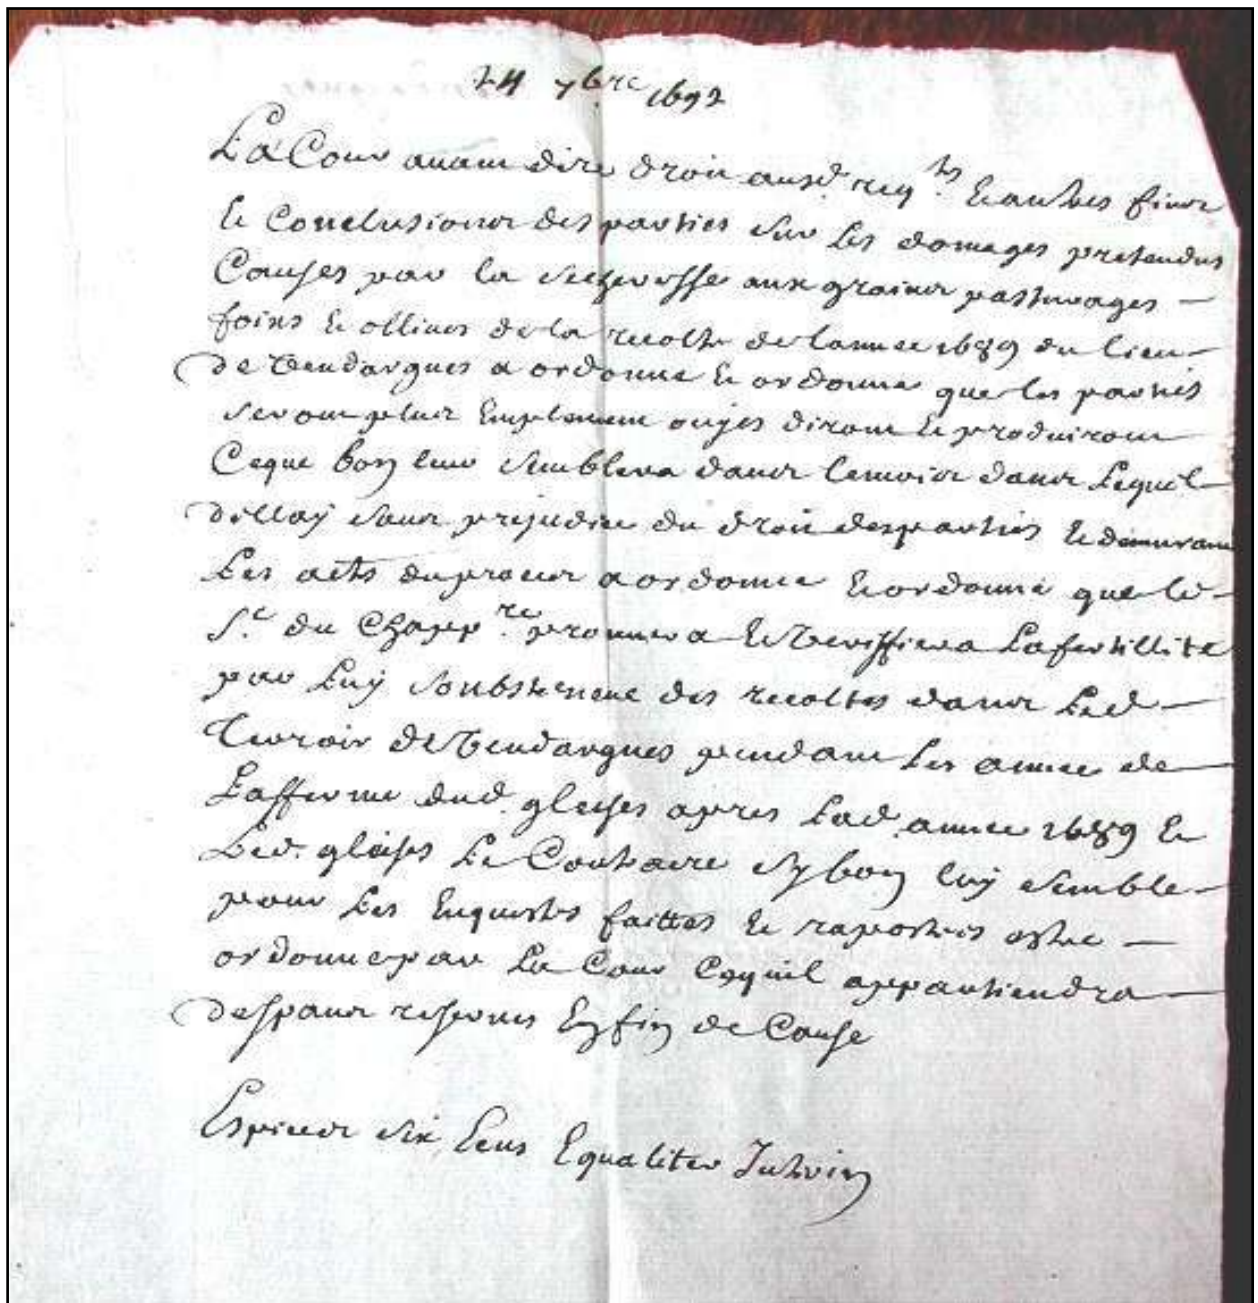 24 7bre 1692
La Cour avant dire droit ausd. reqtes et autres fins
et Conclusions des parties sur les domages pretendus
Causes par la secheresse aux grains pasturages
foins et ollives de la recolte de lannee 1689 du lieu
de Vendargues a ordonne et ordonne que les parties
seront plus emplement ouyes diront et produiront
Ceque bon leur semblera dans lemois dans Lequel
dellay sans prejudice du droit desparties et demurant
Les acts du proces a ordonne et ordonne que le
Sr. du Chappre prouvera et Veriffiera Lafertillite
par Luy soubstenue des recoltes dans Led
Terroir de Vendargues pendant Les annee de
Lafferme dud. gleises apres Lad. annee 1689 et
Led. gleises Le Contraire sy bon luy semble
pour Les Enquestes faittes et raportees estre
ordonne par La Cour Cequil appartiendra
despans reserves En fin de Cause
Espices six Escus Equaliter